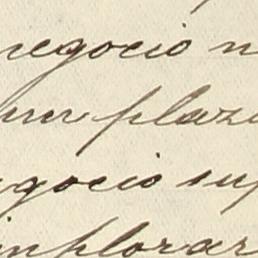 negocio n
un plaz
negocio sup
implorar